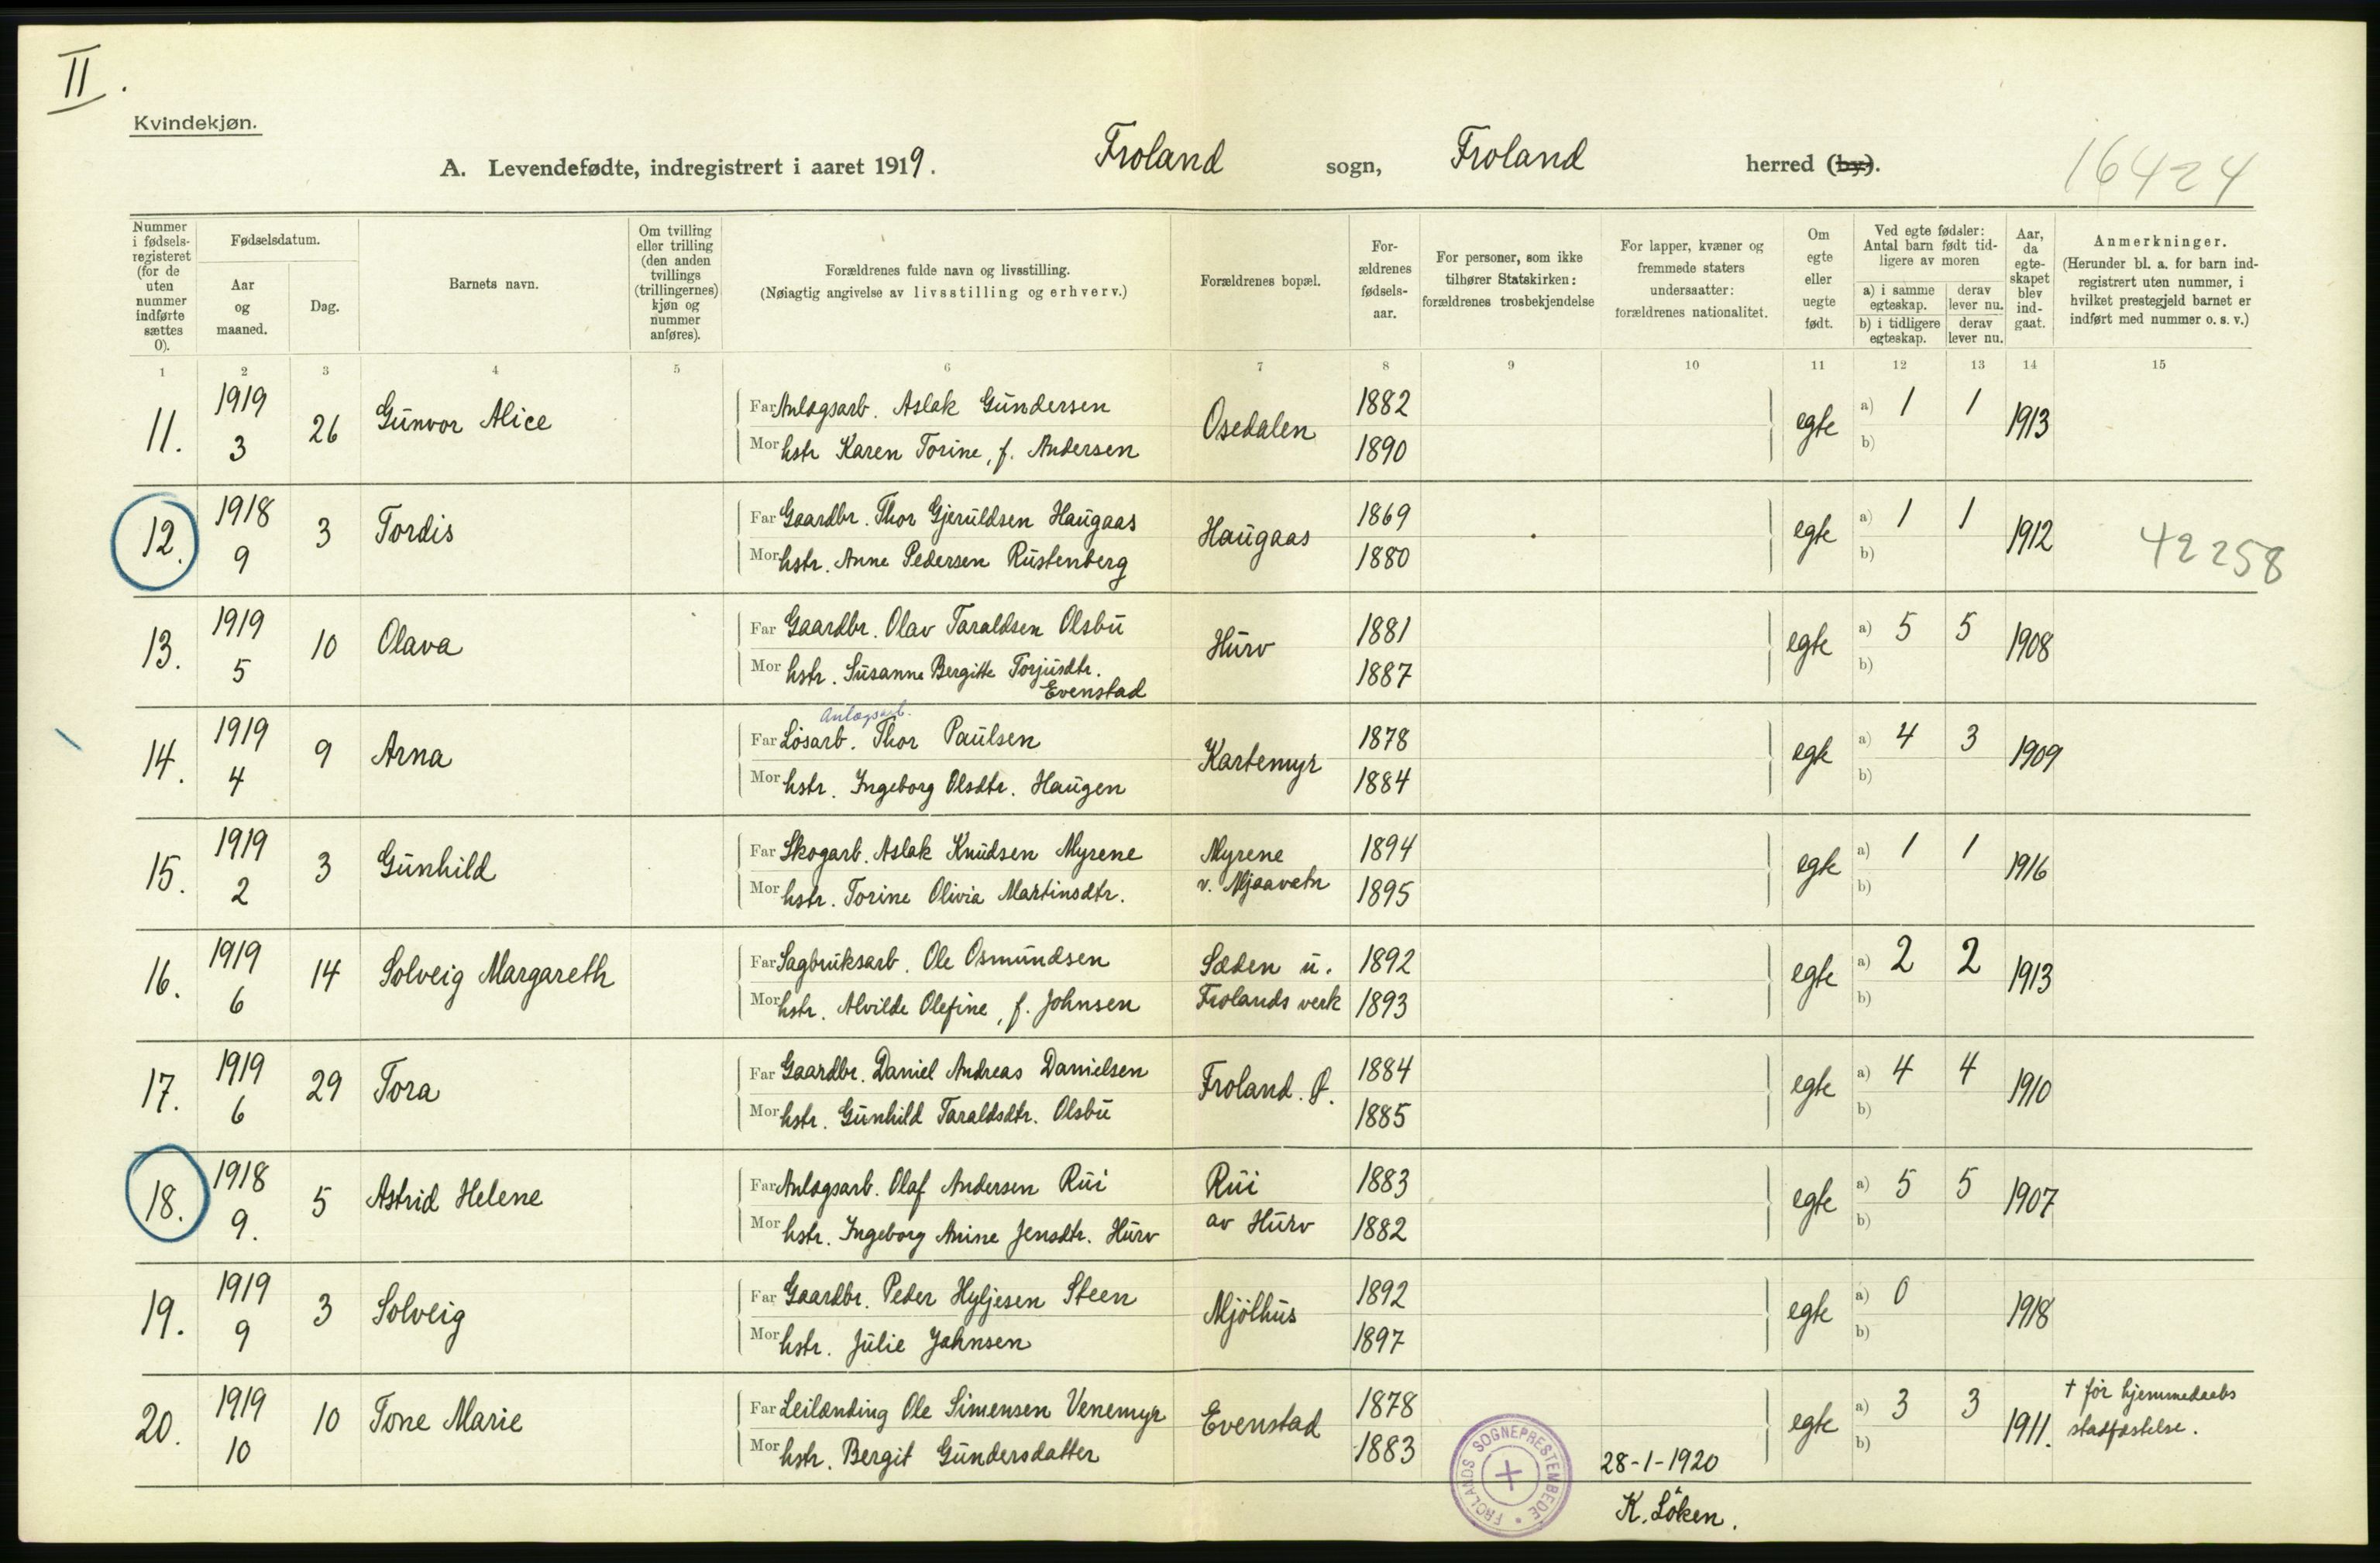 II.
Kvindekjøn.
A. Levendefødte, indregistrert i aaret 1919. Froland sogn, Froland herred (by).
16424
Nummer i fødsels-registeret (for de uten nummer indførte sættes 0).
Fødselsdatum.
Aar og maaned.
Dag.
Barnets navn.
Om tvilling eller trilling (den anden tvillings (trillingernes) kjøn og nummer anføres).
Forældrenes fulde navn og livsstilling.
(Nøiagtig angivelse av livsstilling og erhverv.)
Forældrenes bopæl.
For-ældrenes fødsels-aar.
For personer, som ikke tilhører Statskirken: forældrenes trosbekjendelse
For lapper, kvæner og fremmede staters undersaatter: forældrenes nationalitet.
Om egte eller uegte født.
Ved egte fødsler: Antal barn født tid-ligere av moren
a) i samme egteskap. derav lever nu.
b) i tidligere egteskap. derav lever nu.
Aar, da egte-skapet blev ind-gaat.
Anmerkninger.
(Herunder bl. a. for barn ind-registrert uten nummer, i hvilket prestegjeld barnet er indført med nummer o. s. v.)
1 2 3 4 5 6 7 8 9 10 11 12 13 14 15
11. 1919 3 26 Gunvor Alice Far Anlægsarb. Aslak Gundersen Osedalen 1882 egte a) 1 1 1913
Mor hstr Karen Torine, f. Andersen 1890 b)
12. 1918 9 3 Tordis Far Gaardbr. Thor Gjeruldsen Haugaas Haugaas 1869 egte a) 1 1 1912 42258
Mor hstr. Anne Pedersen Rustenberg 1880 b)
13. 1919 5 10 Olava Far Gaardbr. Olav Taraldsen Olsbu Hurv 1881 egte a) 5 5 1908
Mor hstr. Susanne Bergitte Torjusdtr. Evenstad 1887 b)
Anlægsarb.
14. 1919 4 9 Arna Far Løsarb. Thor Paulsen Kartemyr 1878 egte a) 4 3 1909
Mor hstr. Ingeborg Olsdtr. Haugen 1884 b)
15. 1919 2 3 Gunhild Far Skogarb. Aslak Knudsen Myrene Myrene 1894 egte a) 1 1 1916
Mor hstr. Torine Olivia Martinsdtr. v. Mjaavatn 1895 b)
16. 1919 6 14 Solveig Margareth Far Sagbruksarb. Ole Osmundsen Sæden u. 1892 egte a) 2 2 1913
Mor hstr. Alvilde Olefine, f. Johnsen Frolands verk 1893 b)
17. 1919 6 29 Tora Far Gaardbr. Daniel Andreas Danielsen Froland. Ø. 1884 egte a) 4 4 1910
Mor hstr. Gunhild Taraldsdtr. Olsbu 1885 b)
18. 1918 9. 5 Astrid Helene Far Anlægsarb. Olaf Andersen Rui Rui 1883 egte a) 5 5 1907
Mor hstr. Ingeborg Anine Jensdtr. Hurv av Hurv 1882 b)
19. 1919 9 3 Solveig Far Gaardbr. Peder Hyljesen Steen Mjölhus 1892 egte a) 0 1918
Mor hstr. Julie Johnsen 1897 b)
20. 1919 10 10 Tone Marie Far Leilænding Ole Simensen Venemyr Evenstad 1878 egte a) 3 3 1911. † før hjemmedaabs
Mor hstr. Bergit Gundersdatter 1883 b) stadfæstelse.
FROLANDS SOGNEPRESTEMBEDE
28-1-1920
K. Löken.